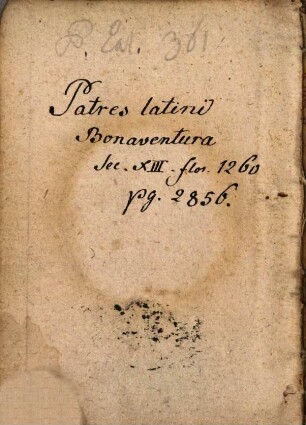 P. Lat. 361
Patres latini
Bonaventura
Sec. XIII. flor. 1260
pg. 2856.